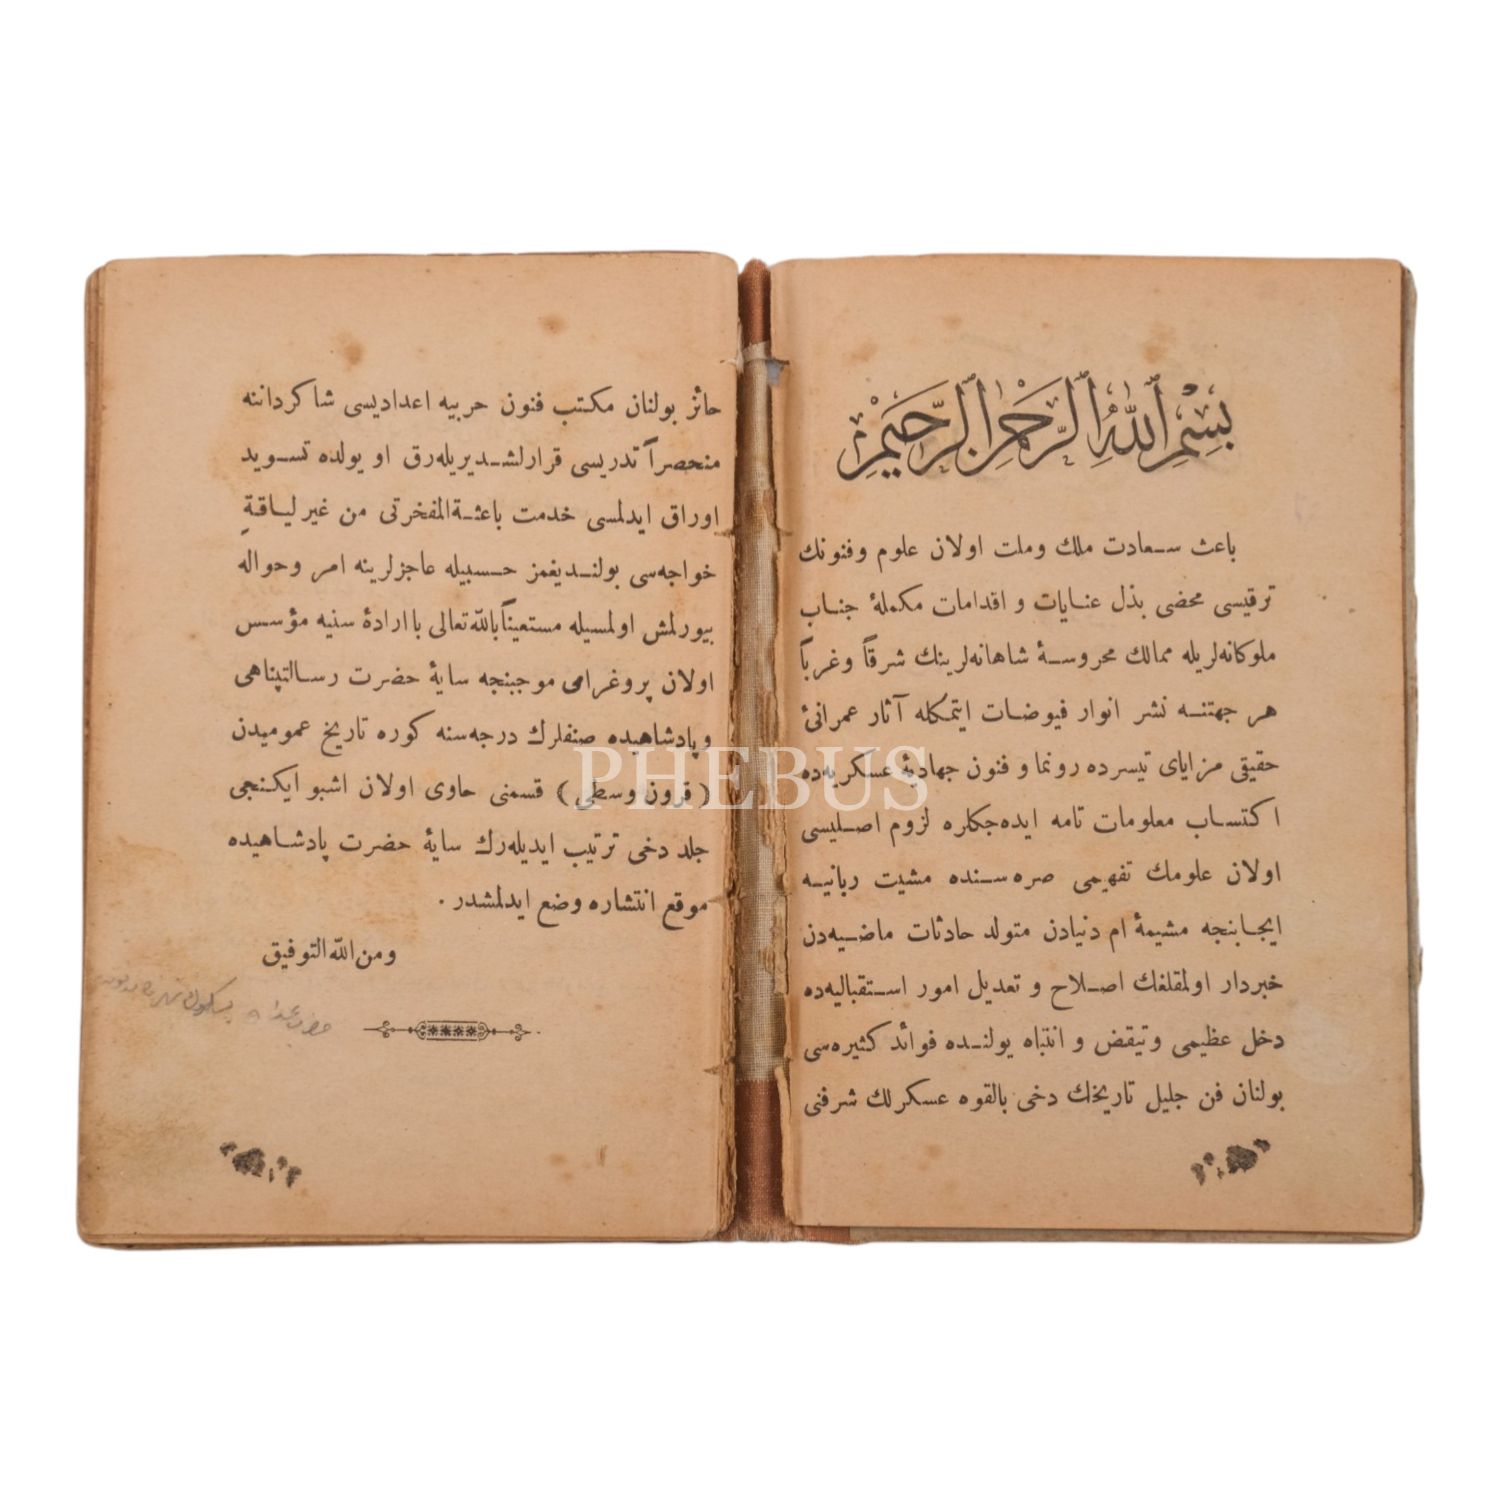 بِسْمِ اللّٰهِ الرَّحْمٰنِ الرَّحِيْمِ
باعث سعادت ملك وملت اولان علوم وفنونك
ترقیسی محضی بذل عنایات و اقدامات مکملهٔ جناب
ملوکانه‌لریله ممالك محروسهٔ شاهانه‌لرینك شرقاً وغرباً
هر جهتنه نشر انوار فیوضات ایتمکله آثار عمرانئ
حقیقی مزایای تیسرده رونما و فنون جهادیهٔ عسکریه‌ده
اکتساب معلومات تامه ایده‌جکلره لزوم اصلیسی
اولان علومك تفهیمی صره‌سنده مشیت ربانیه
ایجابنجه مشیمهٔ ام دنیادن متولد حادثات ماضیه‌دن
خبردار اولمقلغك اصلاح و تعدیل امور استقبالیه‌ده
دخل عظیمی وتیقض و انتباه یولنده فوائد کثیره‌سی
بولنان فن جلیل تاریخك دخی بالقوه عسکرلك شرفنی
حائز بولنان مکتب فنون حربیه اعدادیسی شاکرداننه
منحصراً تدریسی قرارلشدیریله‌رق او یولده تسوید
اوراق ایدلمسی خدمت باعثةالمفخرتی من غیر لیاقةٍ
خواجه‌سی بولندیغمز حسبیله عاجزلرینه امر وحواله
بیورلمش اولمسیله مستعیناً بالله تعالی با ارادهٔ سنیه مؤسس
اولان پروغرامی موجبنجه سایهٔ حضرت رسالتپناهی
و پادشاهیده صنفلرك درجه‌سنه کوره تاریخ عمومیدن
(قرون وسطی) قسمنی حاوی اولان اشبو ایکنجی
جلد دخی ترتیب ایدیله‌رك سایهٔ حضرت پادشاهیده
موقع انتشاره وضع ایدلمشدر .
ومن الله التوفیق
PHEBUS